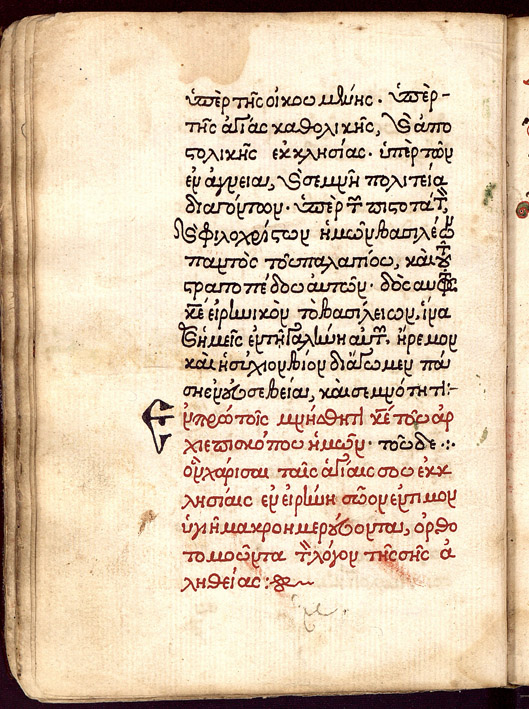 ὑπὲρ τῆς οἰκουμένης. ὑπὲρ-
τῆς ἁγίας καθολικῆς, καὶ ἀπο
στολικῆς ἐκκλησίας. ὑπὲρ τῶν
ἐν ἁγνείαι, καὶ σεμνῆ πολιτεία
διαγόντων. ὑπὲρ τῶν πιστοτάτων,
καὶ φιλοχρίστων ἡμῶν βασιλέων
παντὸς τοῦ παλατίου, καὶ τοῦ
στρατοπέδου αὐτῶν. δὸς αὐτοῖς
κε εἰρηνικὸν τὸ βασίλειον, ἵνα
καὶ ἡμεῖς ἐν τῆ γαλήνη αὐτῶν. ἤρεμον
καὶ ἡσύχιον βίον διάγωμεν πά
ση εὐσεβεία, καὶ σεμνότητι:-
Ἐν πρώτοις μνήσθητι κε τοῦ ἀρ
χιεπισκόπου ἡμῶν. τοῦδε .:.
ὃν χάρισαι ταῖς ἁγίαις σου ἐκ
κλησίαις ἐν εἰρήνη σῶον ἔντιμον
ὑγιῆ μακροημερεύοντα, ὀρθο
τομοῦντα τὸν λόγον τῆς σῆς ἀ
ληθείας: